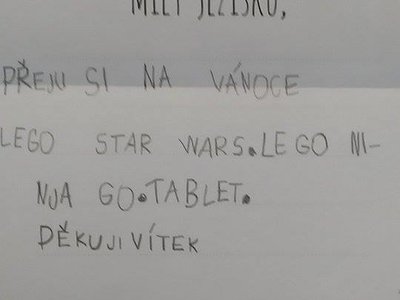 MILÝ JEŽÍŠKU,
PŘEJU SI NA VÁNOCE
LEGO STAR WARS.LEGO NI-
NJA GO.TABLET.
DĚKUJI VÍTEK